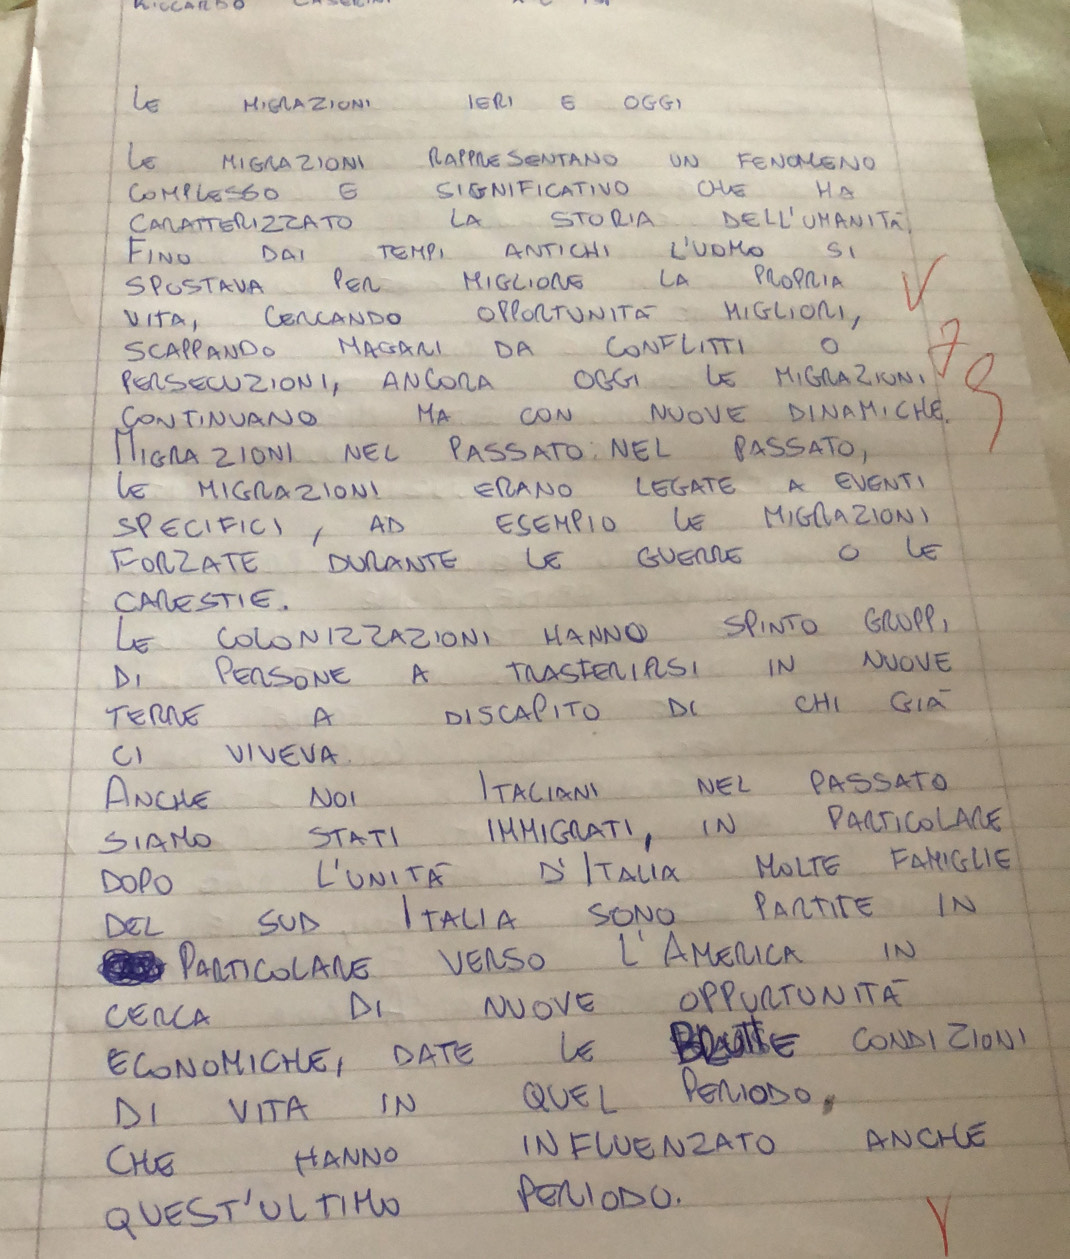 RICCARDO
LE MIGRAZIONI IERI E OGGI
LE MIGRAZIONI RAPPRESENTANO UN FENOMENO
COMPLESSO E SIGNIFICATIVO CHE HA
CARATTERIZZATO LA STORIA DELL'UMANITÀ.
FINO DAI TEMPI ANTICHI L'UOMO SI
SPOSTAVA PER MIGLIORE LA PROPRIA
VITA, CERCANDO OPPORTUNITÀ MIGLIORI,
SCAPPANDO MAGARI DA CONFLITTI O
PERSECUZIONI, ANCORA OGGI LE MIGRAZIONI
CONTINUANO MA CON NUOVE DINAMICHE.
MIGRAZIONI NEL PASSATO: NEL PASSATO,
LE MIGRAZIONI ERANO LEGATE A EVENTI
SPECIFICI, AD ESEMPIO LE MIGRAZIONI
FORZATE DURANTE LE GUERRE O LE
CARESTIE.
LE COLONIZZAZIONI HANNO SPINTO GRUPPI
DI PERSONE A TRASFERIRSI IN NUOVE
TERRE A DISCAPITO DI CHI GIÀ
CI VIVEVA.
ANCHE NOI ITALIANI NEL PASSATO
SIAMO STATI IMMIGRATI, IN PARTICOLARE
DOPO L'UNITÀ D'ITALIA MOLTE FAMIGLIE
DEL SUD ITALIA SONO PARTITE IN
PARTICOLARE VERSO L'AMERICA IN
CERCA DI NUOVE OPPURTUNITÀ
ECONOMICHE, DATE LE BRUTTE CONDIZIONI
DI VITA IN QUEL PERIODO,
CHE HANNO INFLUENZATO ANCHE
QUEST'ULTIMO PERIODO.